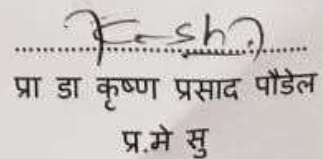 प्रा डा कृष्ण प्रसाद पौडेल
प्र.मे सु